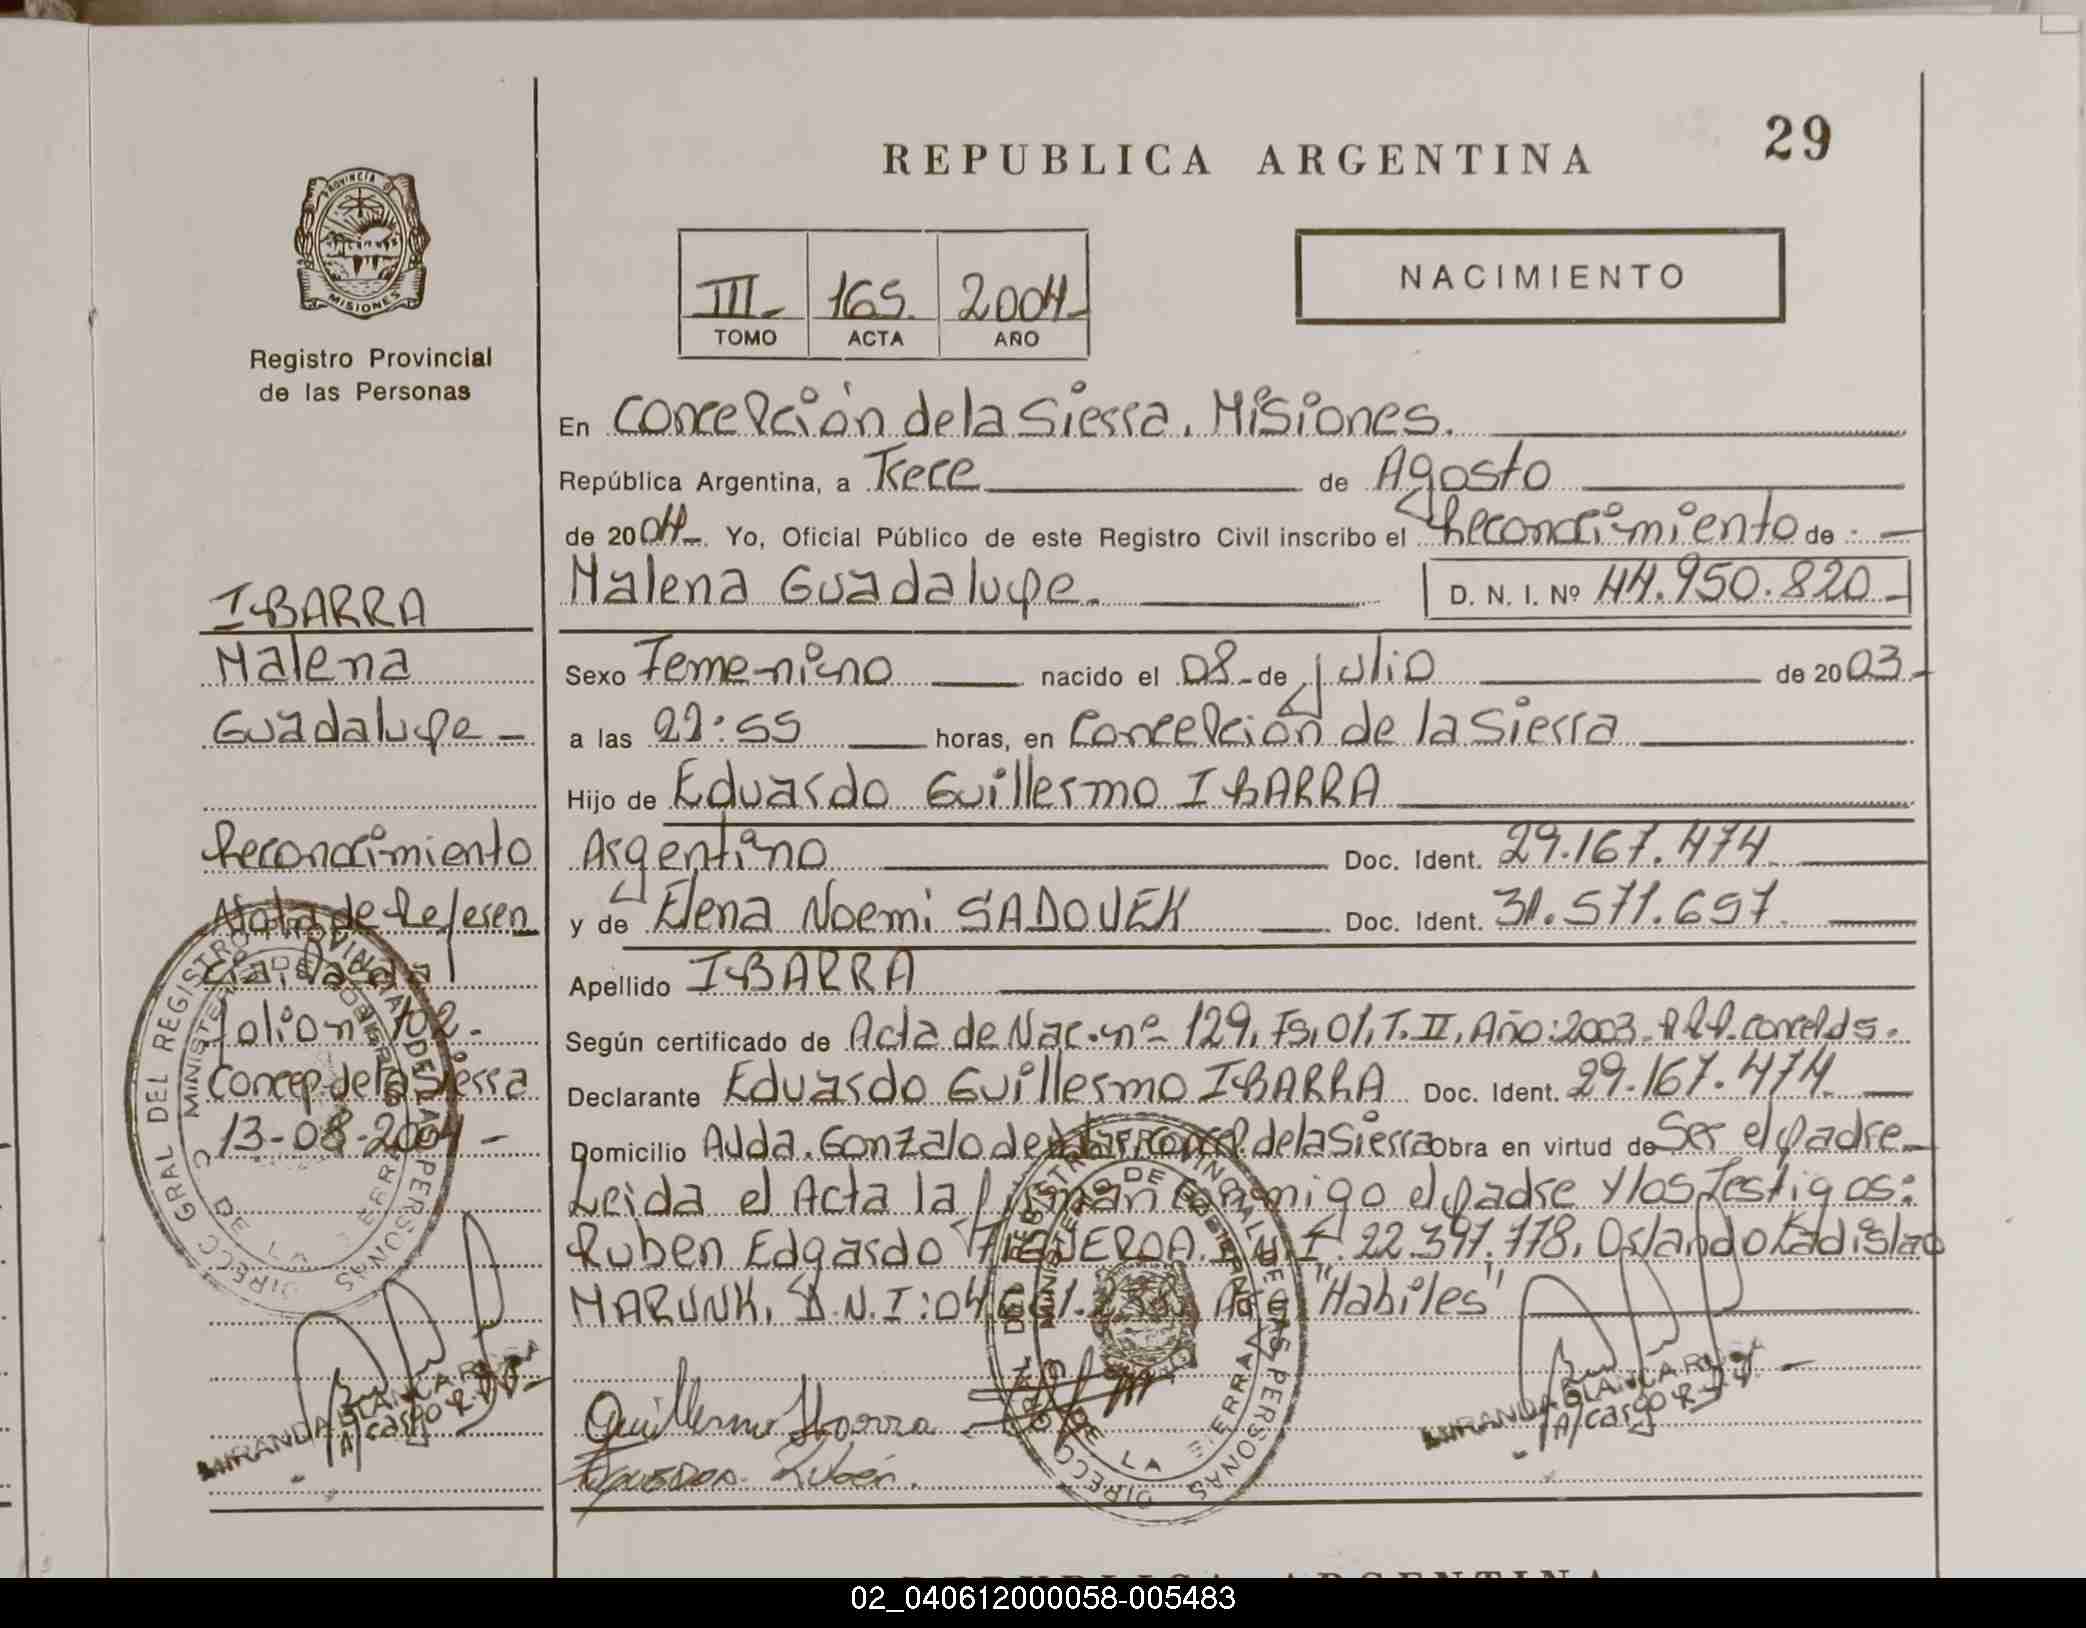 29
REPUBLICA ARGENTINA
PROVINCIA DE
MISIONES
Registro Provincial
de las Personas
NACIMIENTO
III- 165. 2004-
TOMO ACTA AÑO
En Concepción de la Sierra, Misiones.
República Argentina, a Trece de Agosto
de 2004- Yo, Oficial Público de este Registro Civil inscribo el Reconocimiento de
Malena Guadalupe. D. N. I. Nº 44.950.820-
Sexo Femenino nacido el 08- de julio de 2003-
a las 22:55 horas, en Concepción de la Sierra
Hijo de Eduardo Guillermo IBARRA
Argentino Doc. Ident. 29.167.474
y de Elena Noemi SADOVEK Doc. Ident. 31.571.657.
Apellido IBARRA
Según certificado de Acta de Nac. nº 129, Fs, 01, T. II, Año: 2003-
Declarante Eduardo Guillermo IBARRA Doc. Ident. 29.167.474
Domicilio Avda. Gonzalo de de la Sierra Obra en virtud de Ser el padre
Leida el Acta la firman conmigo el padre y los Testigos:
Ruben Edgardo FIGUEROA. D.N.I. 22.397.778, Orlando Ladislao
MARUNK, D.N.I: "Habiles"
Guillermo Ibarra
Figueroa Rubén.
MIRANDA BLANCA ROSA
A/cargo
IBARRA
Malena
Guadalupe -
Reconocimiento
Nota de Referen
cia,
folio nº 102-
Concep. de la Sierra
13-08-2004-
DIRECC GRAL DEL REGISTRO PROVINCIAL DE LAS PERSONAS
MINISTERIO DE GOBIERNO
C DE LA SIERRA
MIRANDA BLANCA ROSA
A/cargo
DIRECC GRAL DEL REGISTRO PROVINCIAL DE LAS PERSONAS
MINISTERIO DE GOBIERNO
DE LA SIERRA
REPUBLICA ARGENTINA
02_040612000058-005483